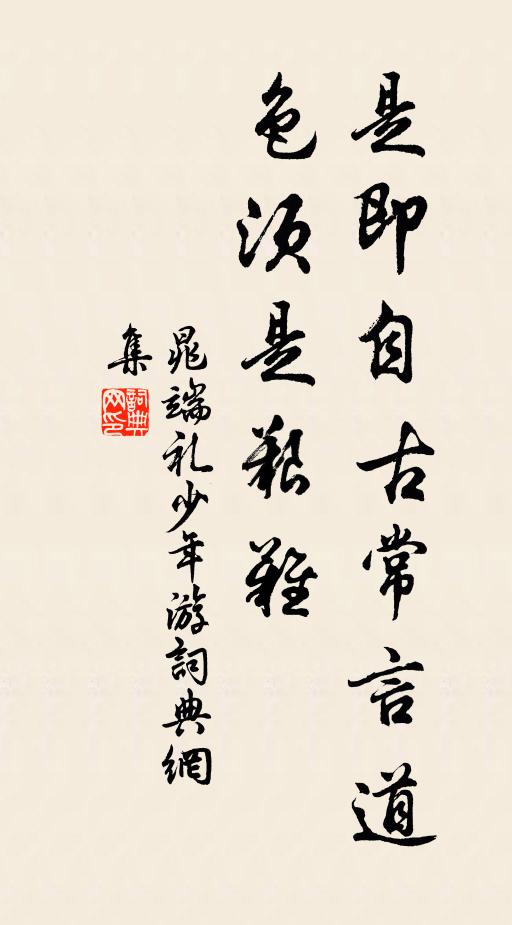 是即自古常言道
色须是艰难
晁端礼少年游詞典網
集
詞典
网印